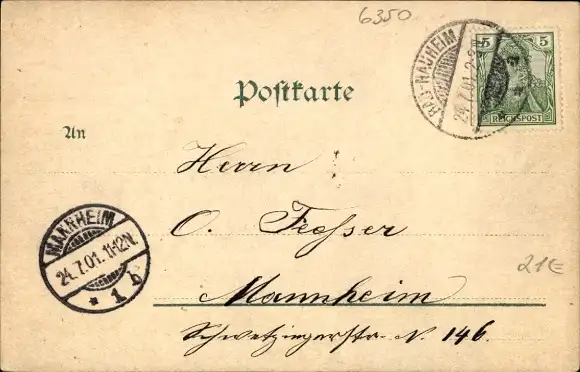 6350
BAD-NAUHEIM
24.7.01.2-3N.
5 5
REICHSPOST
Postkarte
An
Herrn
O. Fesser
MANNHEIM
24.7.01.11-12N.
* 1 b
21€
Mannheim
Schwetzingerstr. N. 146.